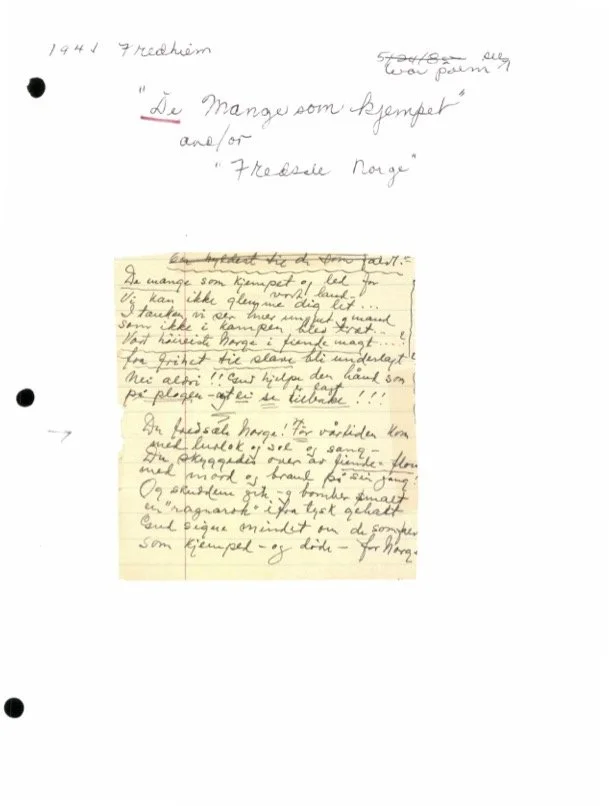 1941 Fredhiem
5/24/80
War poem
"De Mange som kjempet"
and/or
"Fredsæle Norge"
En hyldest til de som falt.
De mange som kjempet og led for
vort land -
Vi kan ikke glemme dig lit...
I tanken vi ser hver unggut og mand
som ikke i kampen blev træt...
Vort höireiste Norge i fiende magt...
fra frihet til slave bli underlagt
Nei aldri!! Gud hjelpe den hånd som
er lagt
på plogen - og ei se tilbake!!!
Du fredsæle Norge! Før vårtiden kom
med luvlok og sol og sang -
Du skyggedes over av fiende-
med mord og brand på sin gang!
Og skuddene gik - og bomber smalt
en "ragnarok" ifra tysk gehalt
Gud signe mindet om de som
som kjemped - og døde - for Norge